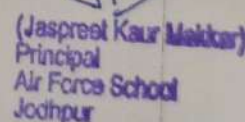 (Jaspreet Kaur Makkar)
Principal
Air Force School
Jodhpur